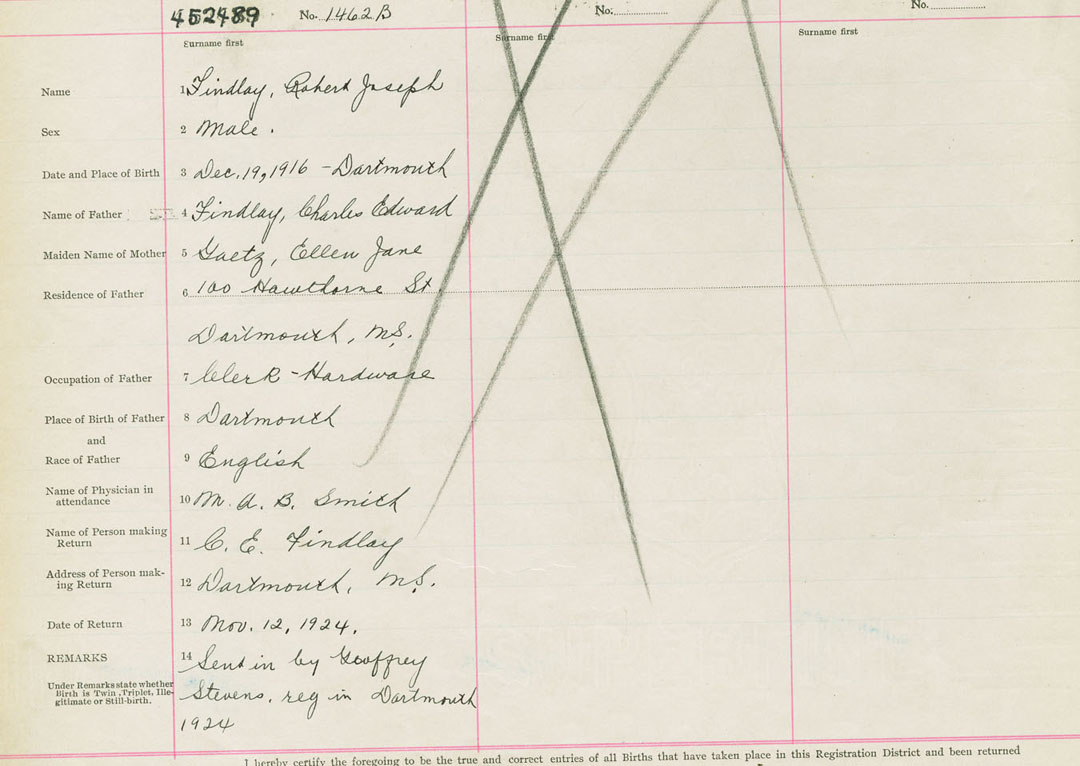 452489 No. 1462 B No. No.
Surname first Surname first Surname first
Name 1 Findlay, Robert Joseph
Sex 2 Male.
Date and Place of Birth 3 Dec, 19, 1916 - Dartmouth
Name of Father 4 Findlay, Charles Edward
Maiden Name of Mother 5 Gaetz, Ellen Jane
Residence of Father 6 100 Hawthorne St
Dartmouth, N.S.
Occupation of Father 7 Clerk - Hardware
Place of Birth of Father 8 Dartmouth
and
Race of Father 9 English
Name of Physician in
attendance 10 M. A. B. Smith
Name of Person making
Return 11 C. E. Findlay
Address of Person mak-
ing Return 12 Dartmouth, N.S.
Date of Return 13 Nov. 12, 1924.
REMARKS 14 Sent in by Geoffrey
Under Remarks state whether
Birth is Twin, Triplet, Ille-
gitimate or Still-birth. Stevens, reg in Dartmouth
1924
I hereby certify the foregoing to be the true and correct entries of all Births that have taken place in this Registration District and been returned